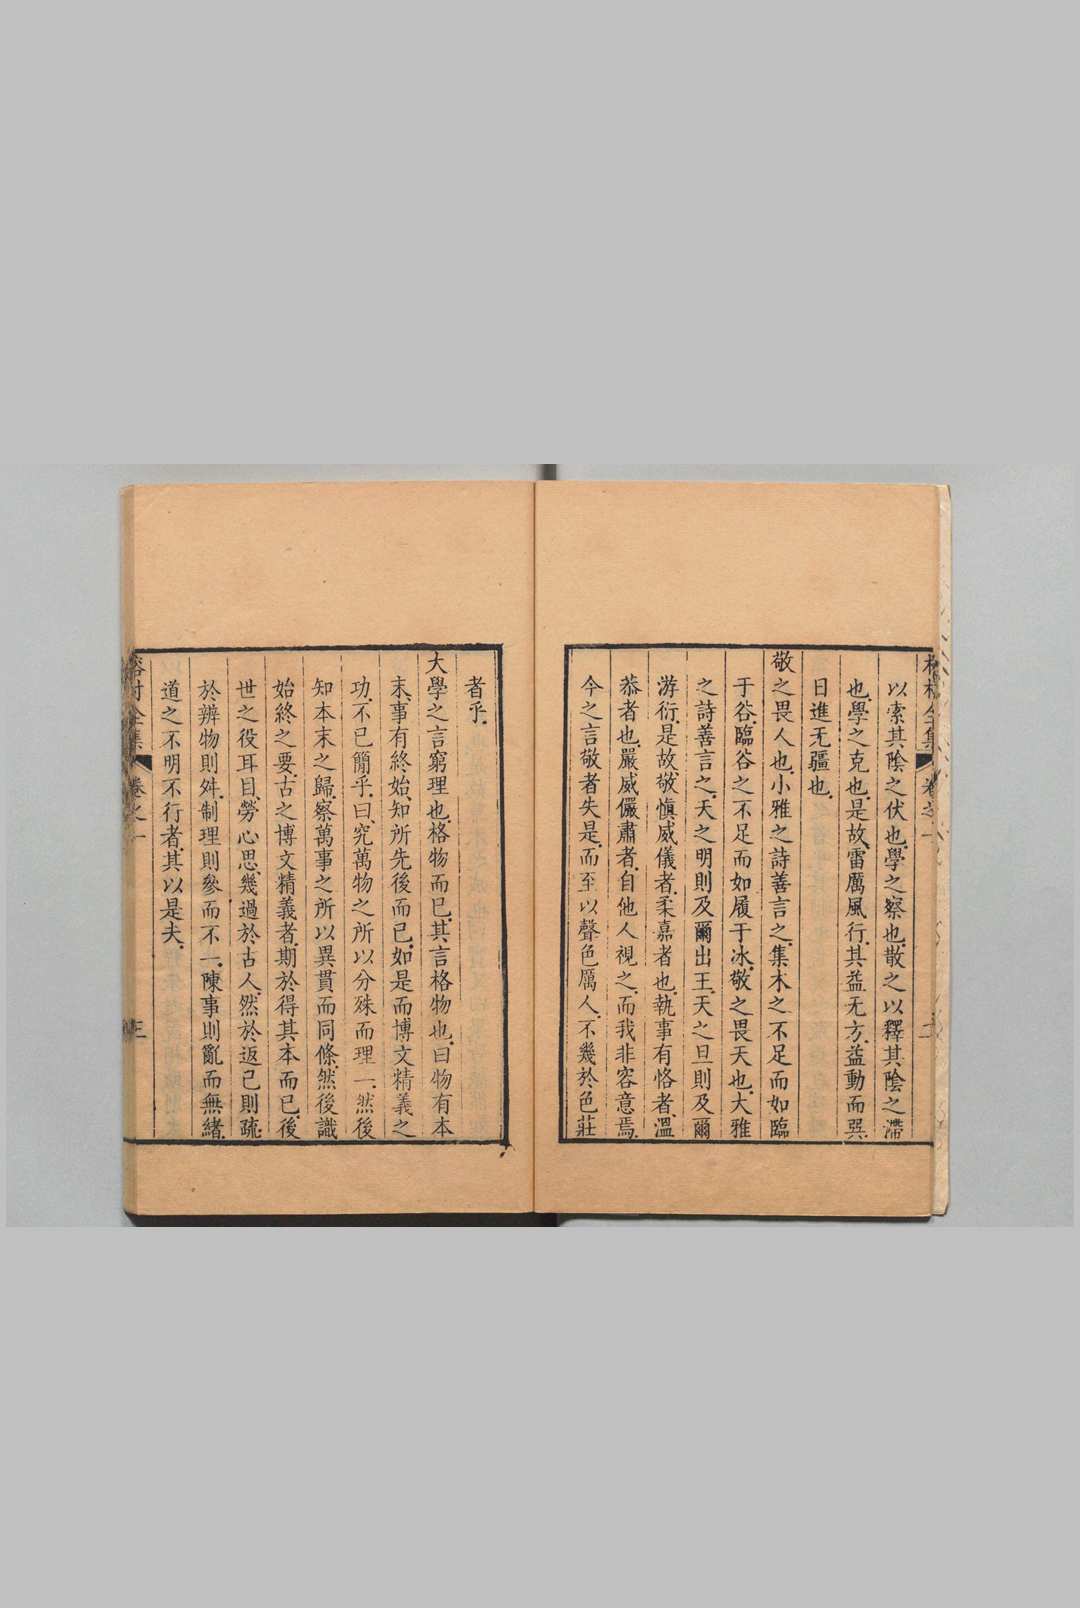 以索其陰之伏也學之察也散之以釋其陰之滯
也學之克也是故雷厲風行其益无方益動而巽
日進无疆也
敬之畏人也小雅之詩善言之集木之不足而如臨
于谷臨谷之不足而如履于冰敬之畏天也大雅
之詩善言之天之明則及爾出王天之旦則及爾
游衍是故敬慎威儀者柔嘉者也執事有恪者溫
恭者也嚴威儼肅者自他人視之而我非容意焉
今之言敬者失是而至以聲色厲人不幾於色莊
者乎
大學之言窮理也格物而已其言格物也曰物有本
末事有終始知所先後而已如是而博文精義之
功不已簡乎曰究萬物之所以分殊而理一然後
知本末之歸察萬事之所以異貫而同條然後識
始終之要古之博文精義者期於得其本而已後
世之役耳目勞心思幾過於古人然於返己則疏
於辨物則舛制理則參而不一陳事則亂而無緒
道之不明不行者其以是夫
榕村全集 卷之一 三